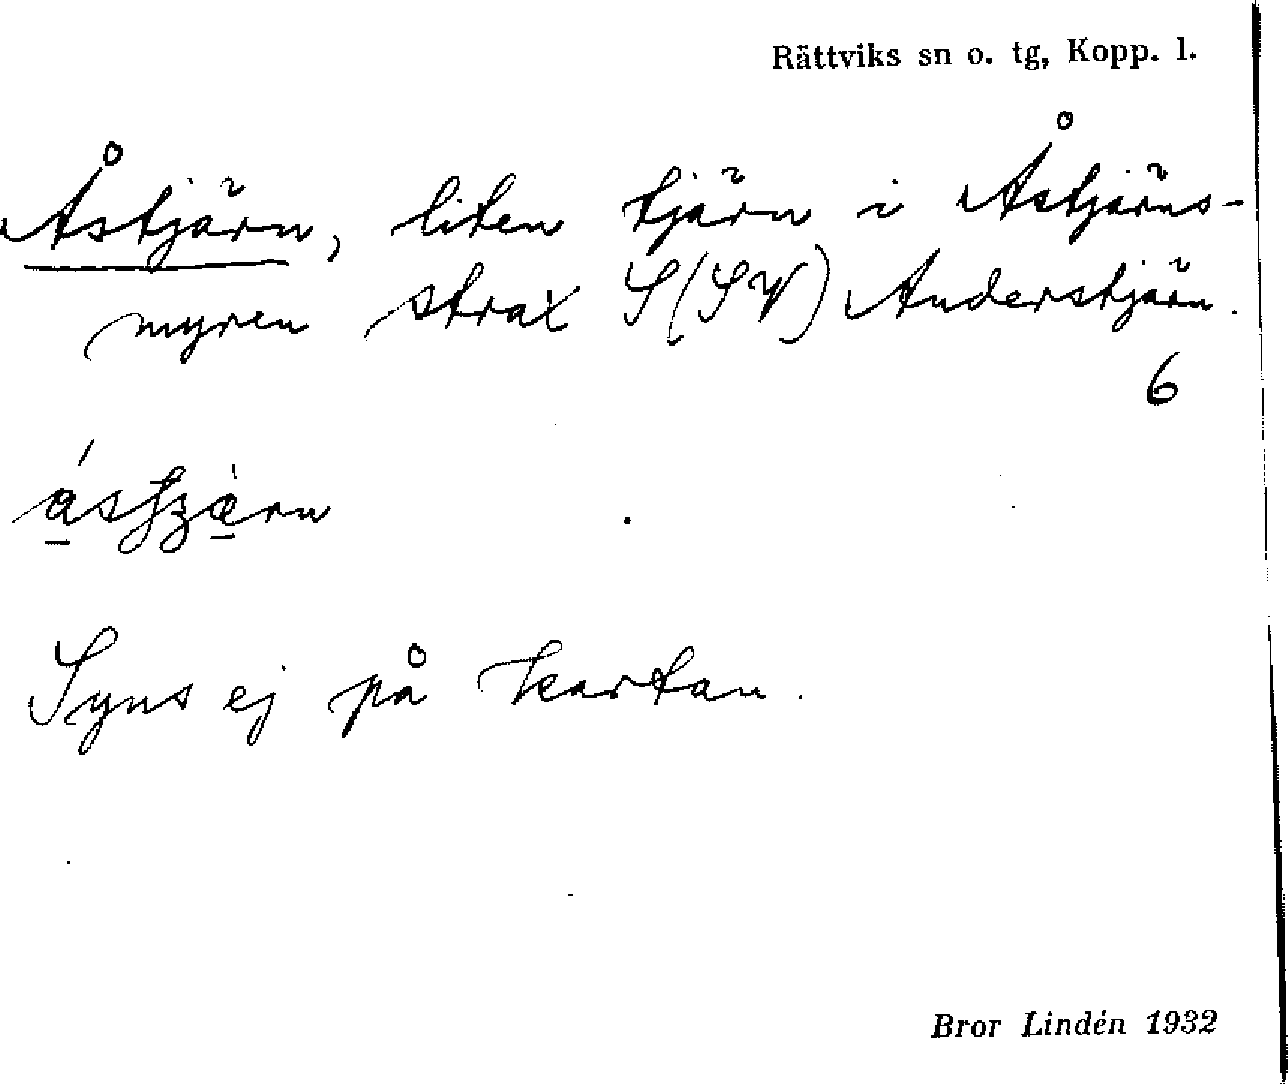 Rättviks sn o. tg, Kopp. l.
Åstjärn, liten tjärn i Åstjärns-
myren strax S (SV) Anderstjärn.
6
Syns ej på kartan.
Bror Lindén 1932